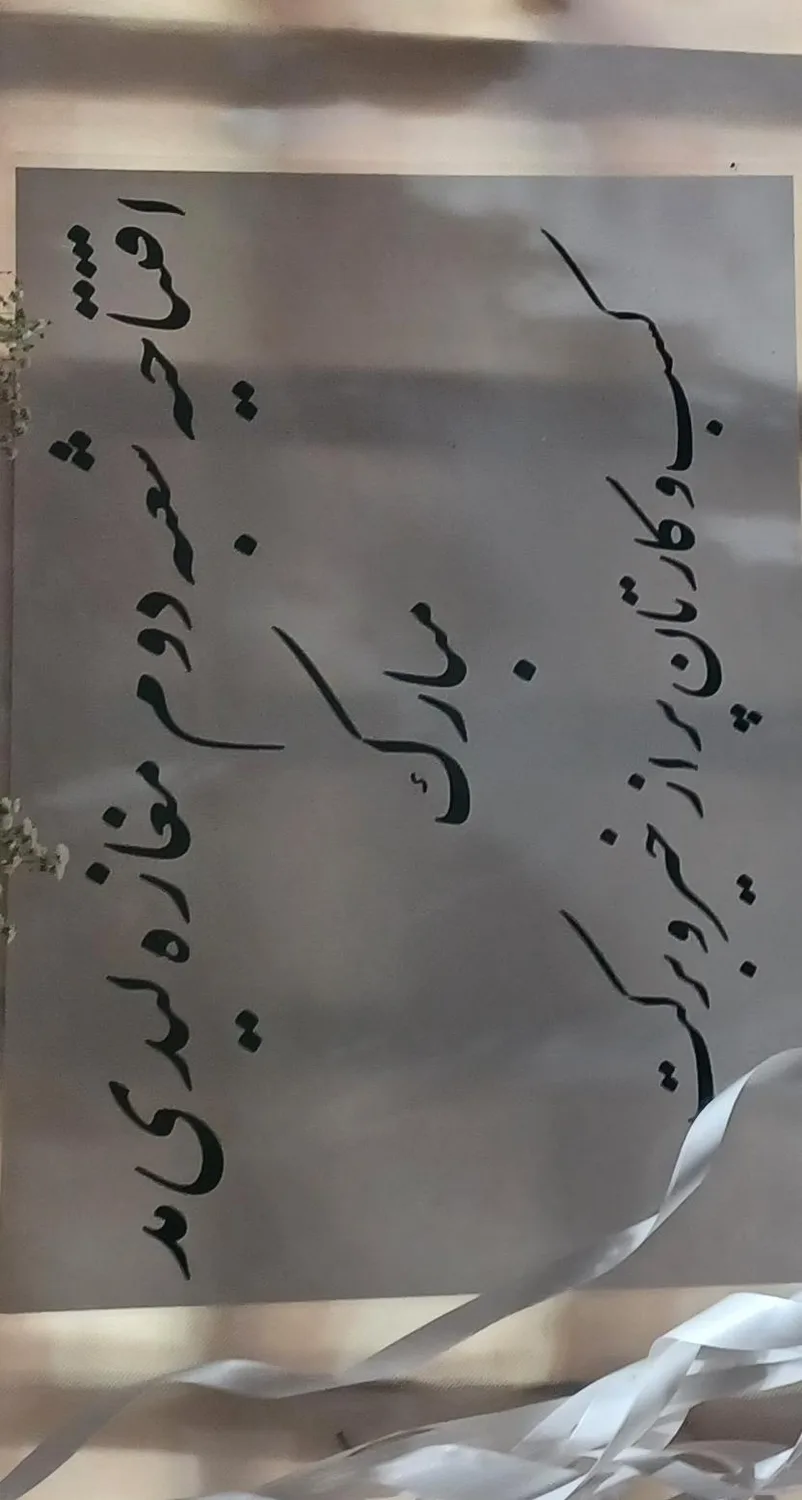 افتتاحیه شعبه دوم مغازه لیدی مد
مبارک
کسب و کارتان پر از خیر و برکت